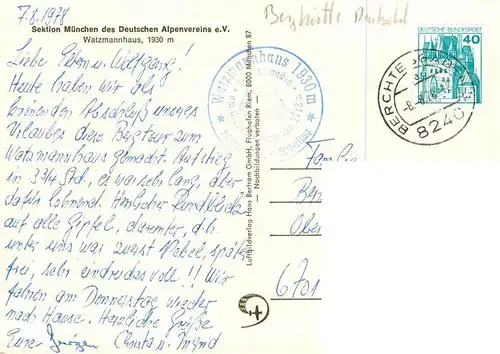 7.8.1978
Sektion München des Deutschen Alpenvereins e.V.
Watzmannhaus, 1930 m
Liebe Eltern u. Wolfgang!
Heute haben wir als
krönenden Abschluß unseres
Urlaubes diese Bergtour zum
Watzmannhaus gemacht. Aufstieg
in 3 3/4 Std., es war sehr lang, aber
dafür lohnend. Herrlicher Rundblick
auf alle Gipfel, darunter, d.h.
unter uns war zuerst Nebel, später
frei, sehr eindrucksvoll!! Wir
fahren am Donnerstag wieder
nach Hause. Herzliche Grüße
Eure Jürgen Christa u. Ingrid
Luftbildverlag Hans Bertram GmbH, Flughafen Riem, 8000 München 87
– Nachbildungen verboten –
Watzmannhaus 1930 m
Berghütte
DEUTSCHE BUNDESPOST
40
BERCHTESGADEN
8240
Familie
Ober
6701